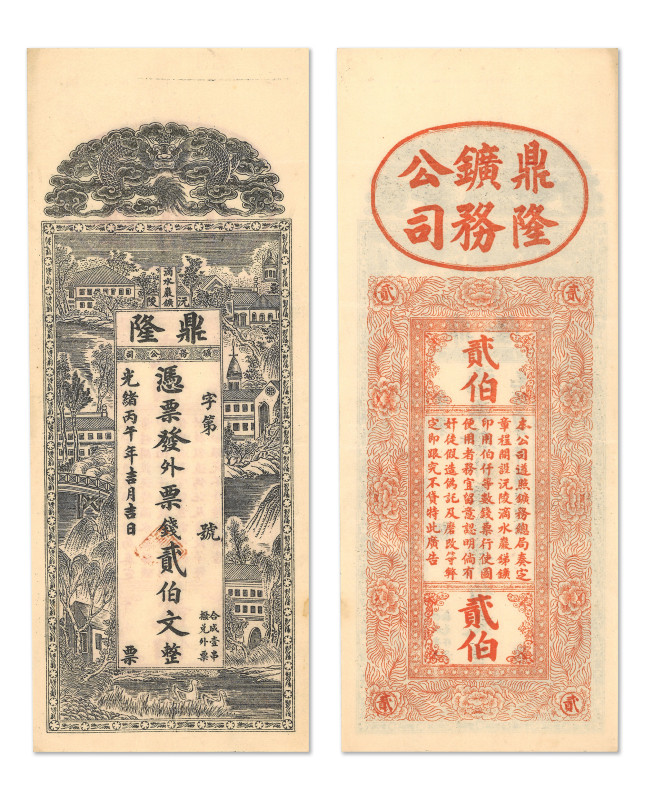 沅陵
滴水巖礦
鼎隆
礦務公司
字第 號
憑票發外票錢貳伯文整
合成壹串
撥兑外票
光緒丙午年吉月吉日 票
鼎隆
鑛務
公司
貳
貳
貳伯
本公司遵照鑛務總局奏定
章程開涯沅陵滴水巖銻鑛
印用伯仟等數錢票行使圖
使用者務宜留意認明倘有
奸徒假造偽託及磨改等弊
定即跟究不貸特此廣告
貳伯
貳
貳